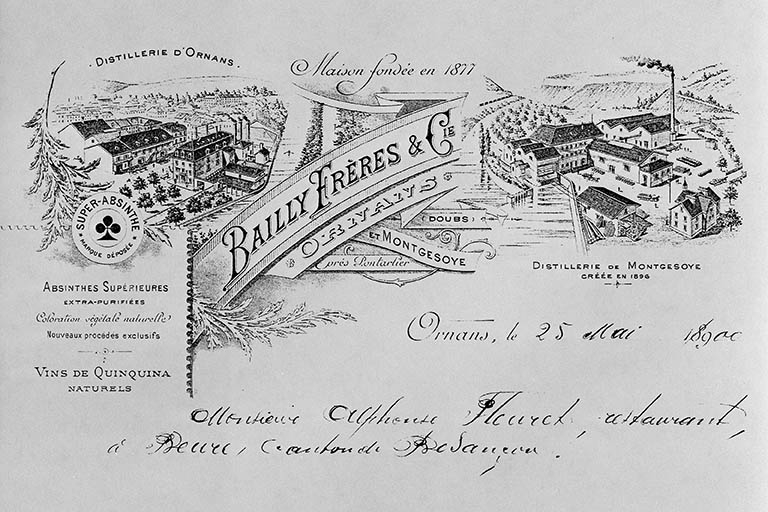 DISTILLERIE D'ORNANS.
Maison fondée en 1877
BAILLY FRÈRES & CIE
ORNANS
(DOUBS)
ET MONTGESOYE
près Pontarlier
SUPER-ABSINTHE
MARQUE DÉPOSÉE
ABSINTHES SUPÉRIEURES
EXTRA-PURIFIÉES
Coloration végétale naturelle
Nouveaux procédés exclusifs
VINS DE QUINQUINA
NATURELS
DISTILLERIE DE MONTGESOYE
CRÉÉE EN 1896
Ornans, le 25 Mai 1890
Monsieur Alphonse Fleuret, restaurant,
à Beure, canton de Besançon.